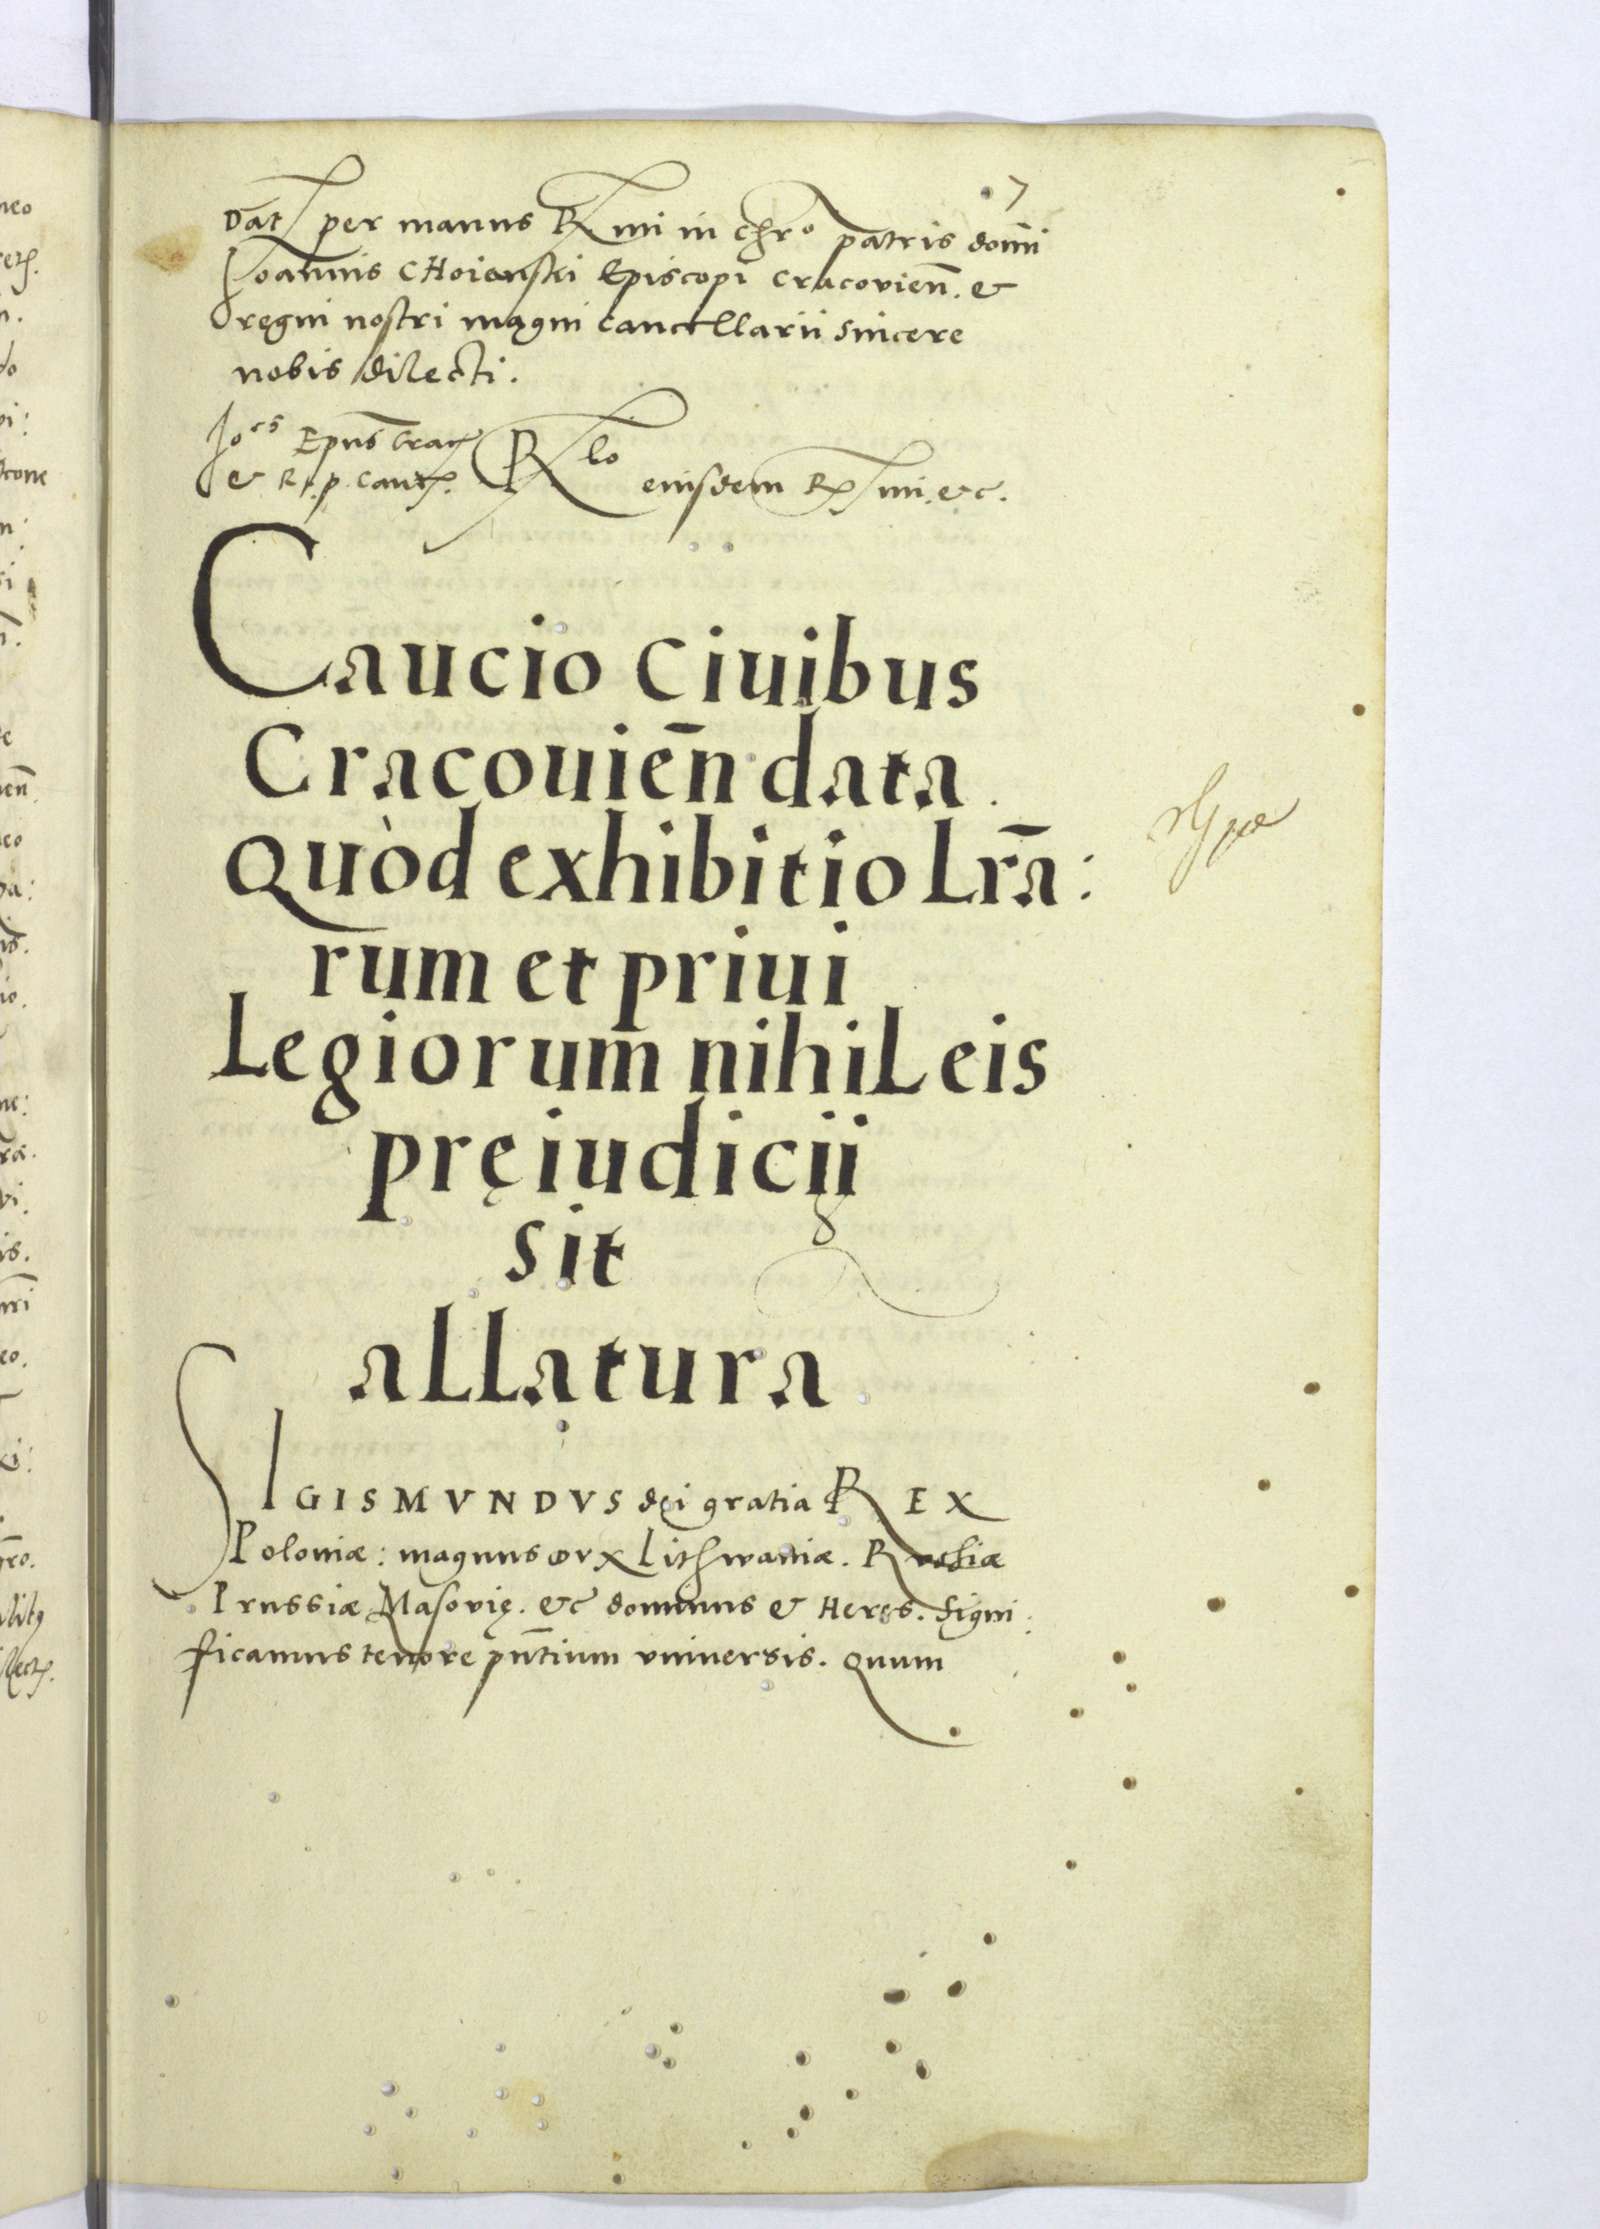 7
Dat per manus R mi in chro patris domi
Ioannis CHoienski Episcopi Cracovien̄. &
regni nostri magni cancellarii sincere
nobis dilecti.
Jo es Epus Crac
& R. p. Canc. Rlo eiusdem R mi. &c.
Caucio Ciuibus
Cracouiēn data
Quòd exhibitio Lr̄a:
rum et priui
Legiorum nihiL eis
pręiudicij
sit
aLLatura
SIGISMVNDVS dei gratia REX
Poloniæ: magnus DVX Lithwaniæ. Russiæ
Prussiæ Masovię. &c dominus & Heres. Signi:
ficamus tenore pn̄tium vniversis. Quum